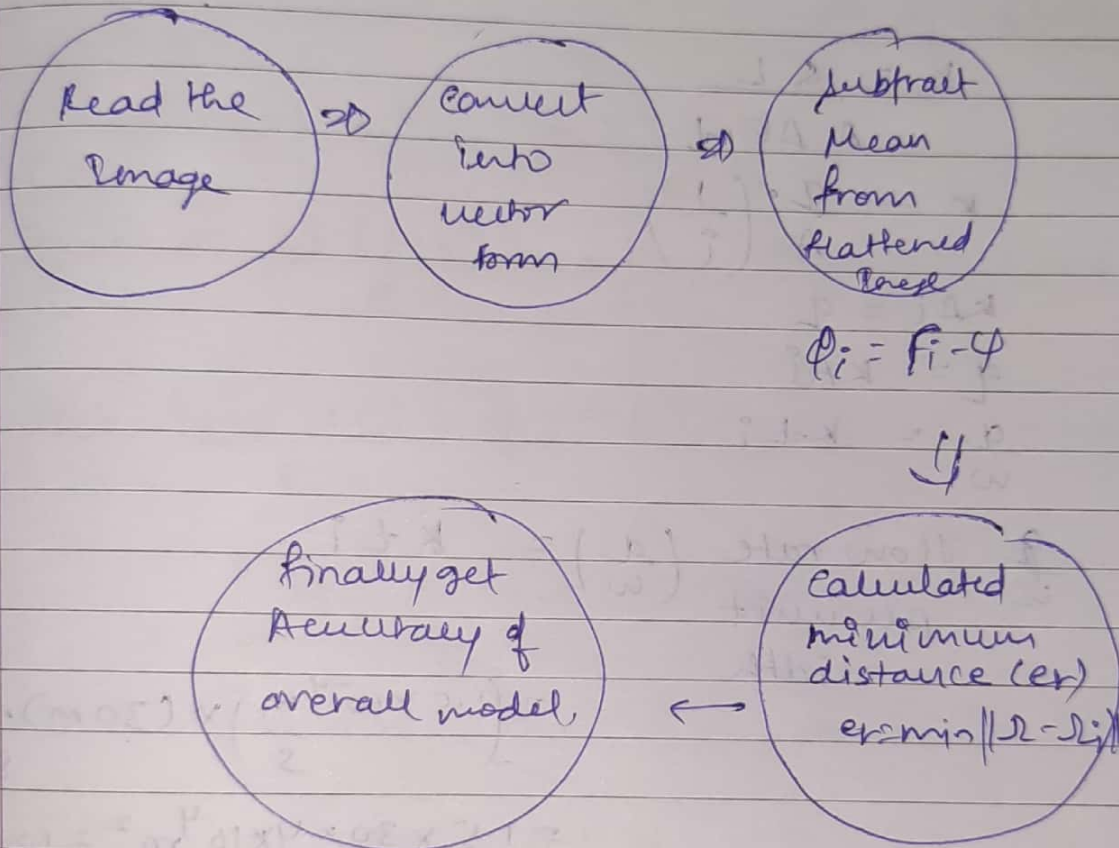 Read the
Image
⇒
Convert
into
vector
form
⇒
Subtract
Mean
from
flattened
Image
φi = Γi - ψ
⇓
Calculated
minimum
distance (er)
er=min||Ω-Ωi||
←
finally get
Accuracy of
overall model.